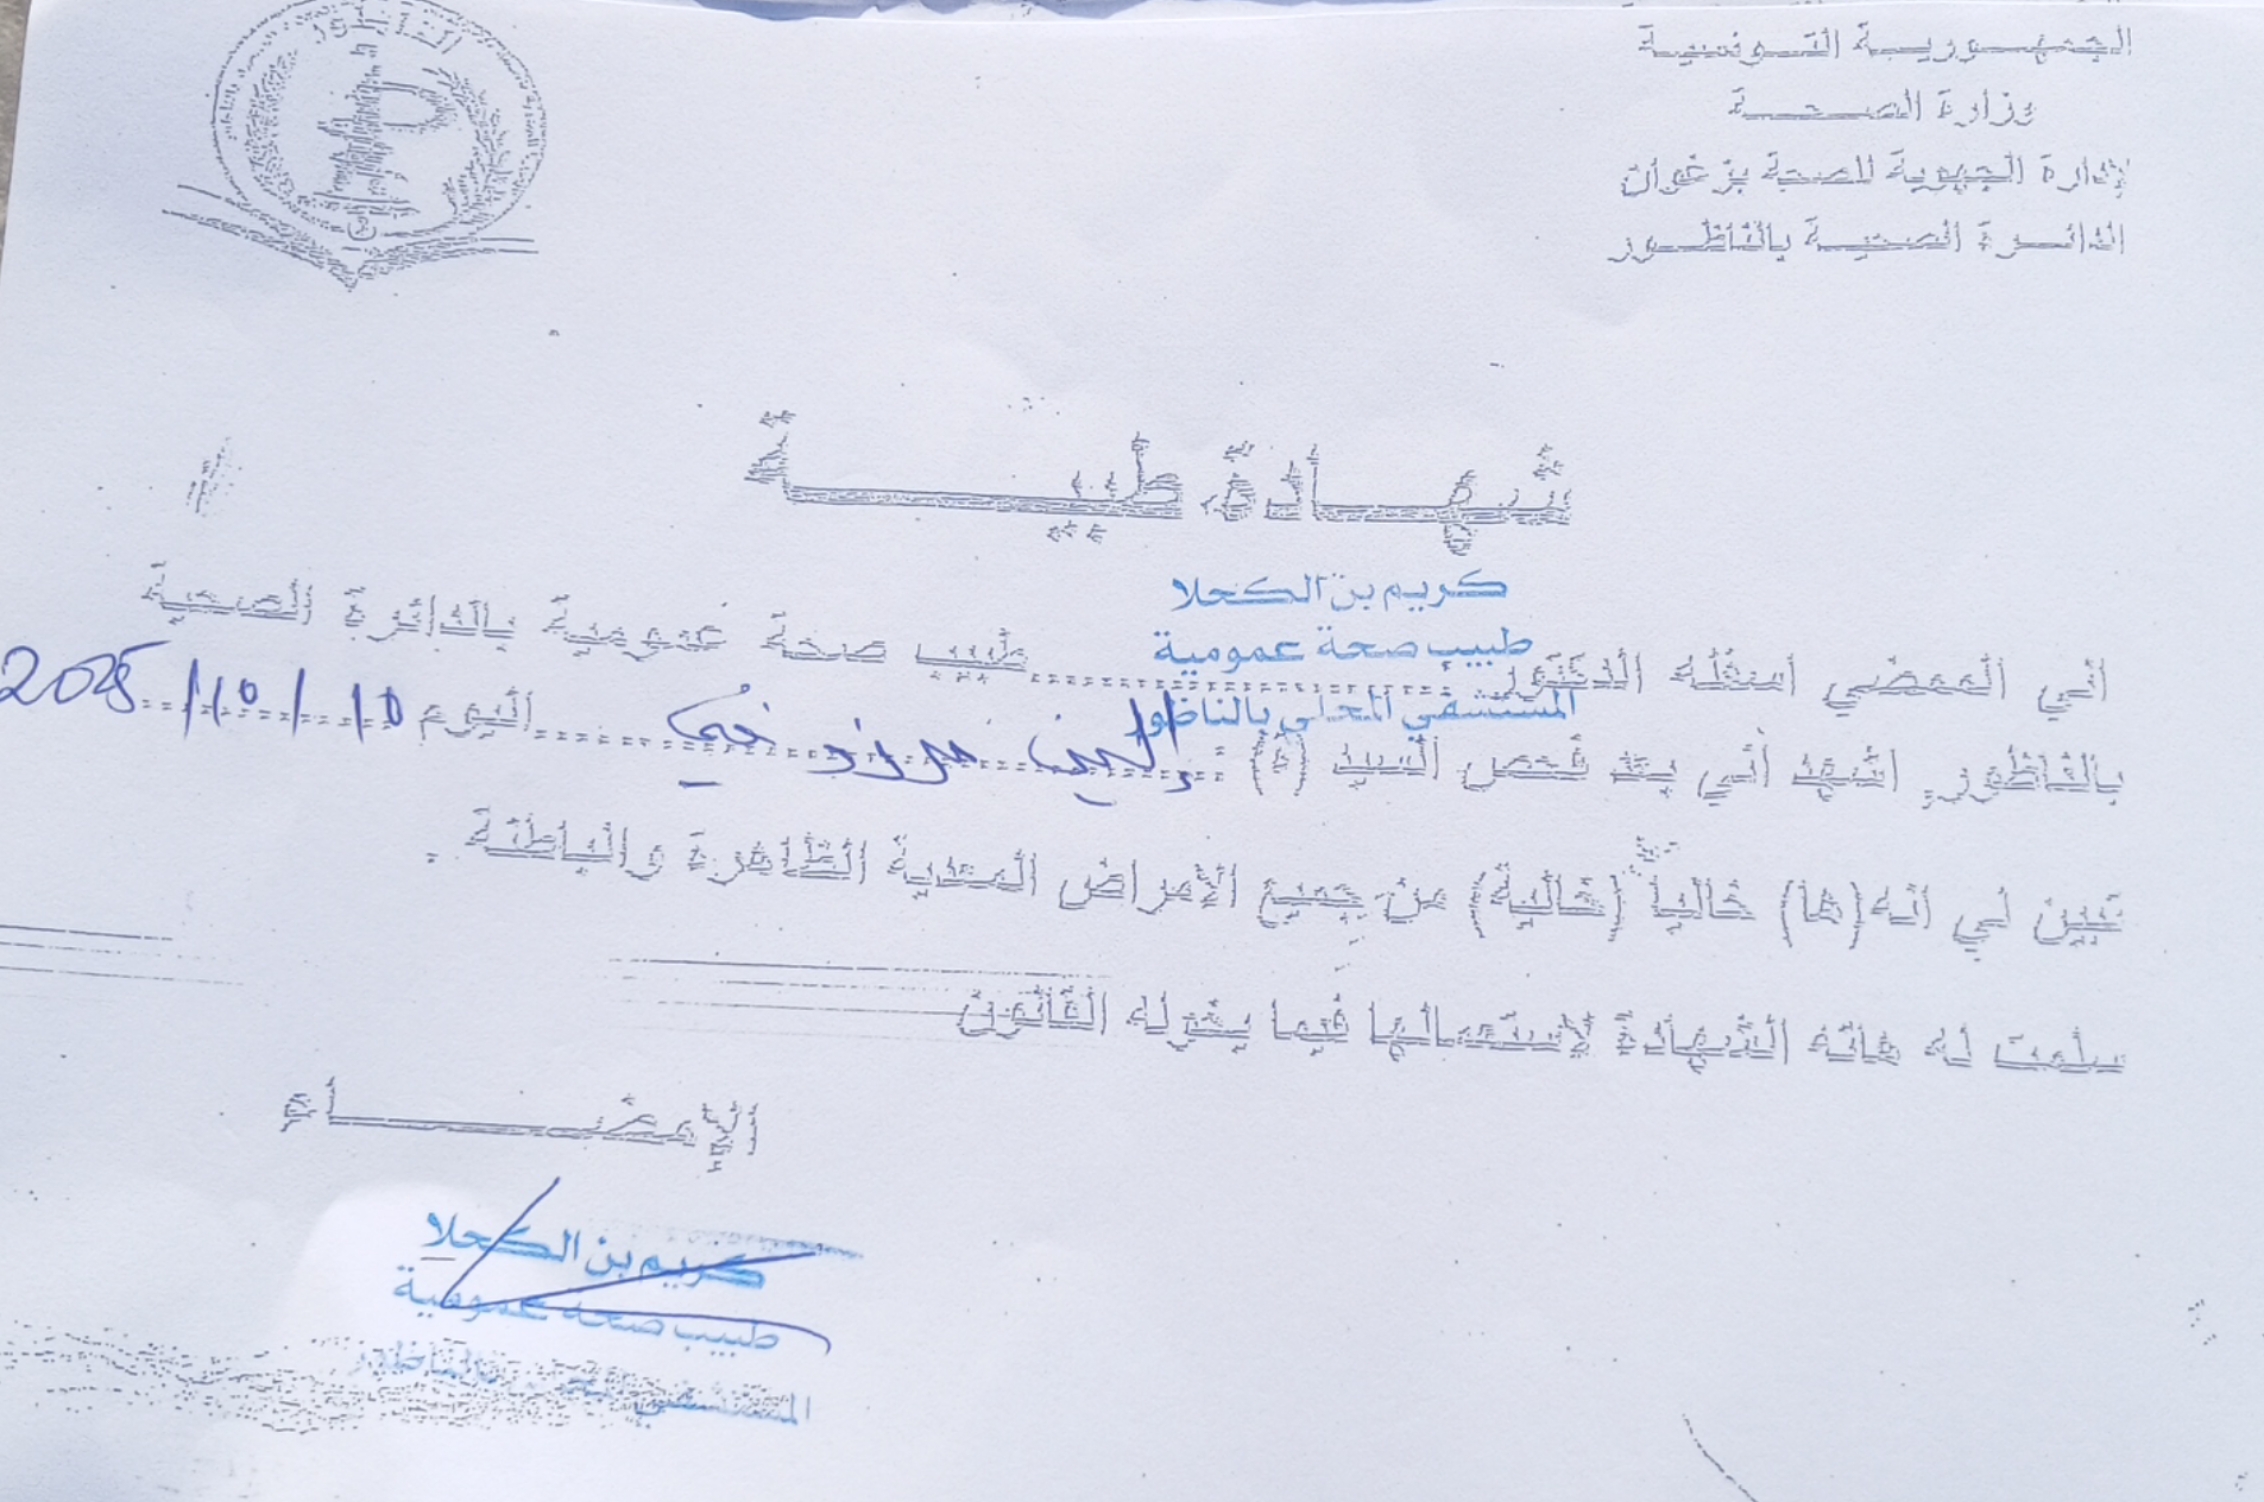 الجمهورية التونسية
وزارة الصحة
الإدارة الجهوية للصحة بزغوان
الدائرة الصحية بالناظور
الناظور
شهادة طبية
كريم بن الكحلا
طبيب صحة عمومية
المستشفى المحلي بالناظور
اني الممضي اسفله الدكتور طبيب صحة عمومية بالدائرة الصحية
بالناظور اشهد أني بعد فحص السيد (ة) : اليوم 10/10/2025
تبين لي انه(ها) خاليا (خالية) من جميع الامراض المعدية الظاهرة والباطنة .
سلمت له هاته الشهادة لاستعمالها فيما يخوله القانون
الإمضاء
كريم بن الكحلا
طبيب صحة عمومية
المستشفى بالناظور